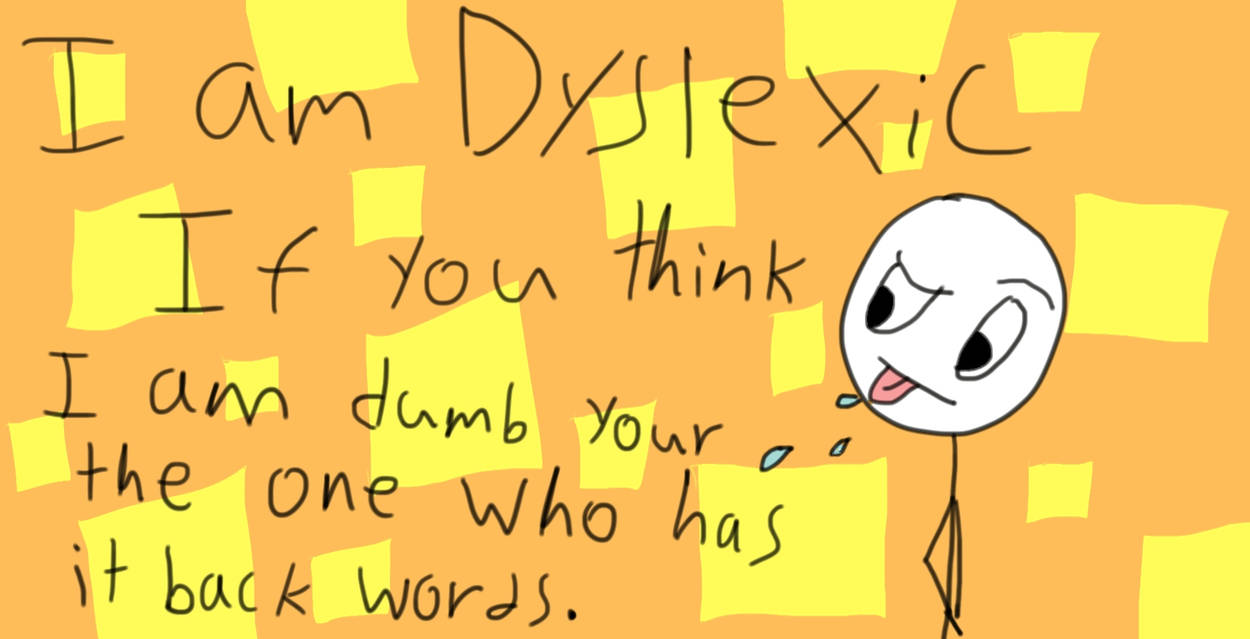 I am Dyslexic
If you think
I am dumb your
the one who has
it back words.